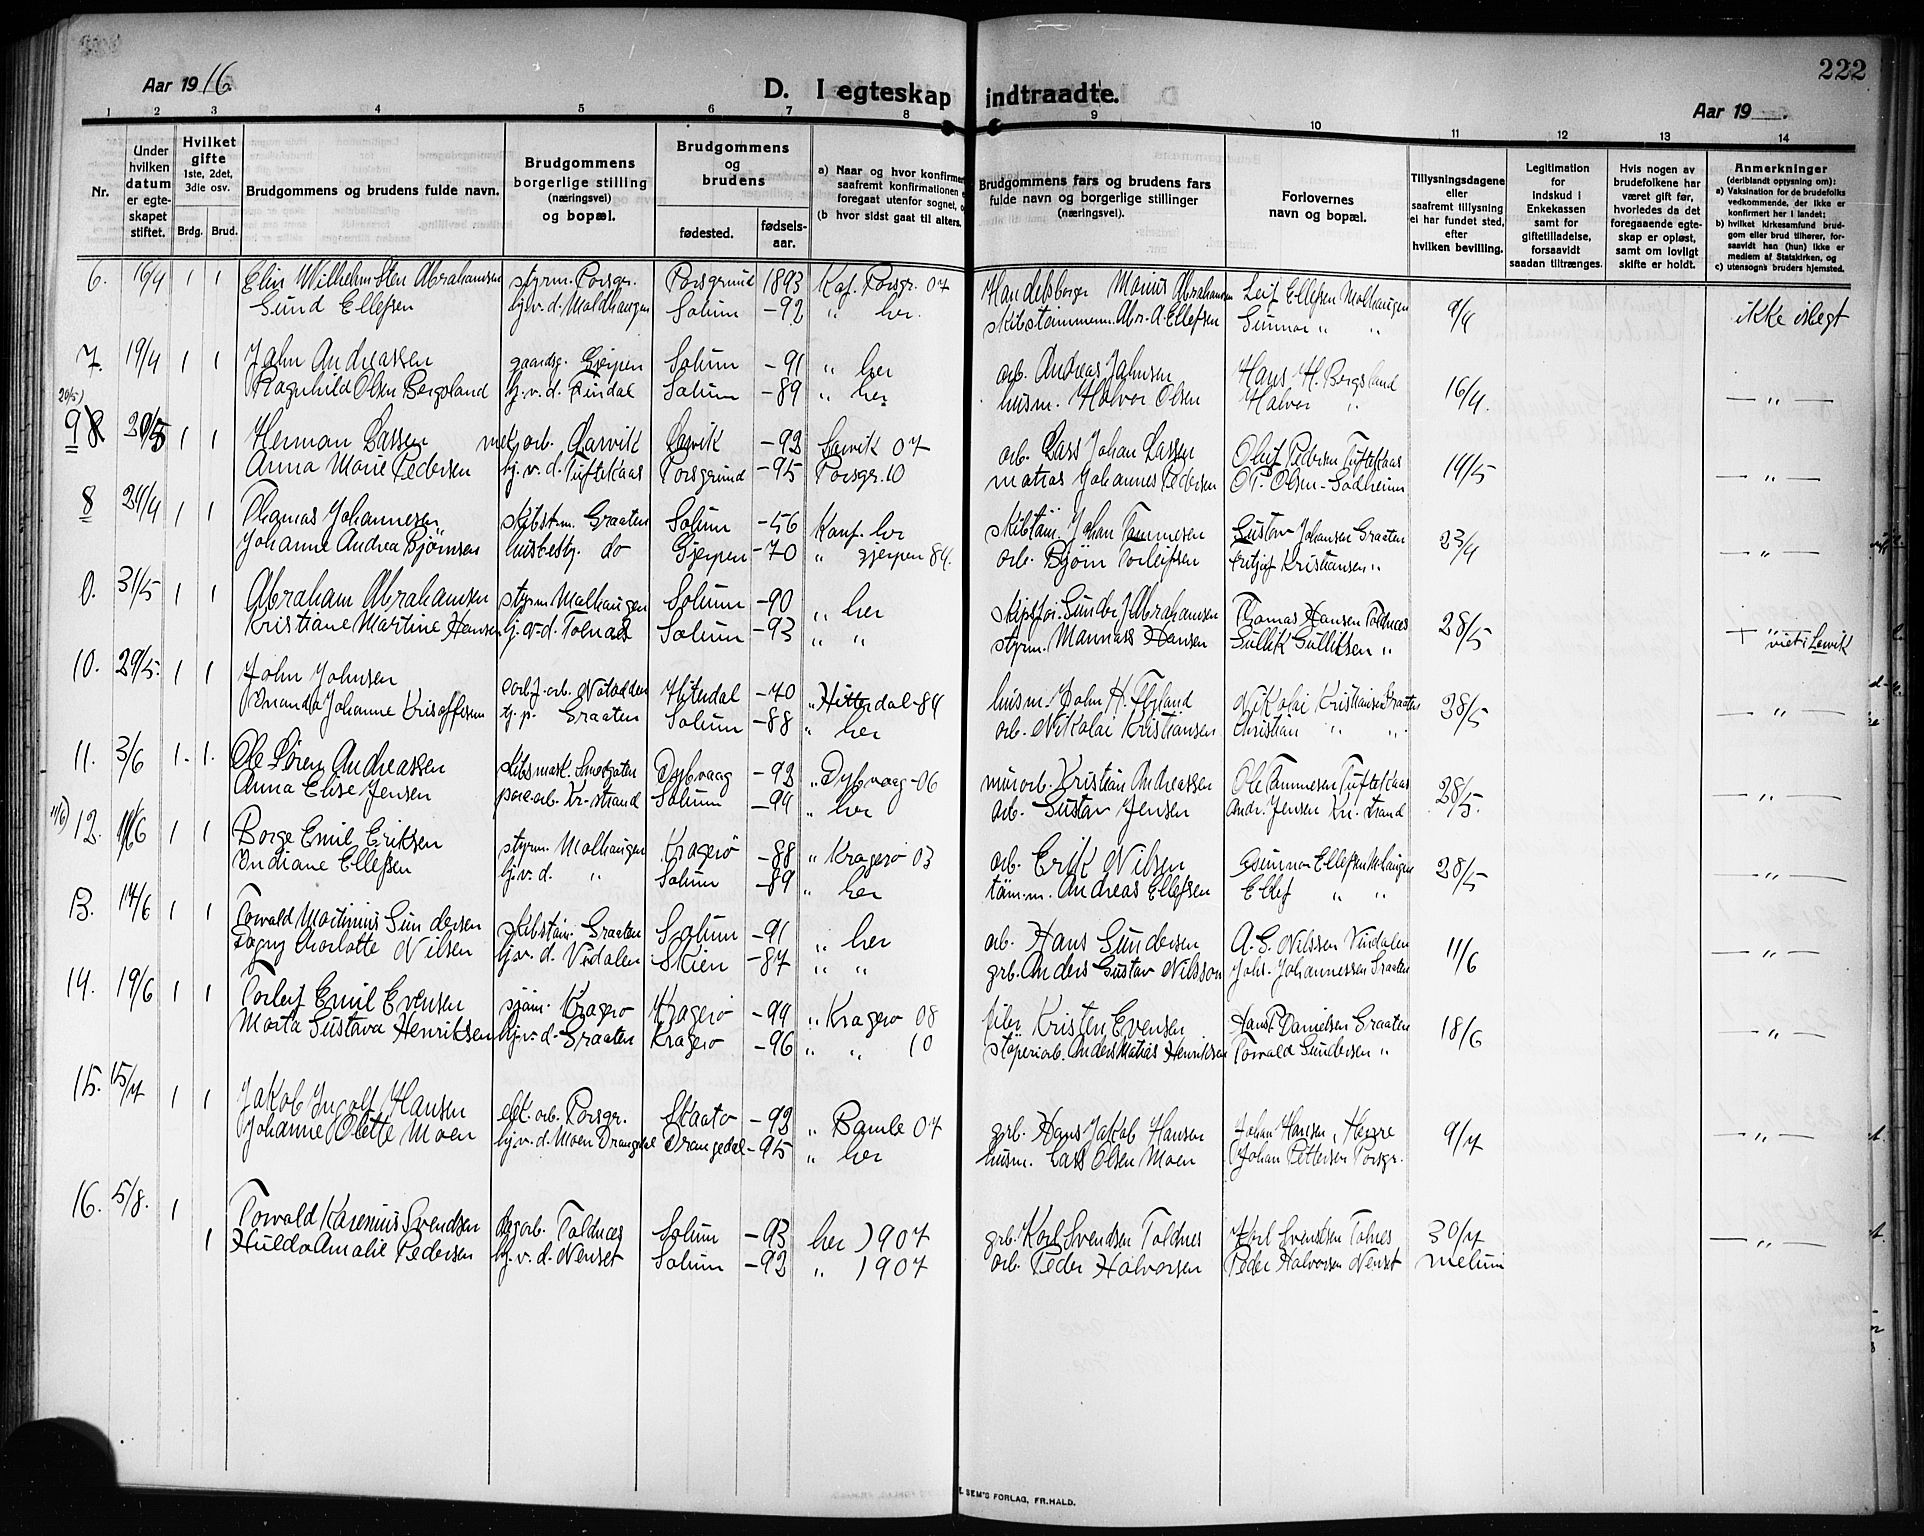 222
Aar 1916.
D. I egteskap indtraadte.
Aar 19
1 2 3 4 5 6 7 8 9 10 11 12 13 14
Nr.
Under hvilken datum er egteskapet stiftet.
Hvilket gifte 1ste, 2det, 3die osv.
Brdg. Brud.
Brudgommens og brudens fulde navn.
Brudgommens borgerlige stilling (næringsvei) og bopæl.
Brudgommens og brudens
fødested.
fødselsaar.
a) Naar og hvor konfirmert
saafremt konfirmationen
foregaat utenfor sognet,
(b hvor sidst gaat til alters.
Brudgommens fars og brudens fars fulde navn og borgerlige stillinger (næringsvei).
Forlovernes navn og bopæl.
Tillysningsdagene eller saafremt tillysning ei har fundet sted, efter hvilken bevilling.
Legitimation for indskud i Enkekassen samt for giftetilladelse, forsaavidt saadan tiltrænges.
Hvis nogen av brudefolkene har været gift før, hvorledes da det foregaaende egteskap er opløst, samt om lovligt skifte er holdt.
Anmerkninger (deriblandt oplysning om): a) Vaksination for de brudefolks vedkommende, der ikke er konfirmert her i landet; b) hvilket kirkesamfund brudgom eller brud tilhører, forsaavidt han (hun) ikke er medlem af Statskirken, og c) utensogn's bruders hjemsted.
6. 16/4 1 1 Wilhelm Sten Abrahamsen styrm. Porsgr. Porsgrund 1893 Kaf. Porsgr. 07 Handelsborger Marius Abrahamsen Leif Ellefsen Molhaugen 9/4 ikke islegt
Gund Ellefsen hj.v.d. Moldhaugen Solum -92 " her. skibstømmerm. Abr. A. Ellefsen Gunnar " "
7. 19/4 1 1 John Andreassen gaardsg. Gjerpen Solum -91 " her arb. Andreas Johnsen Hans H. Bergsland 16/4. — " —
Ragnhild Olsen Bergsland hj.v.d. Rindal Solum -89 " her husm. Halvor Olsen Halvor "
20/5)
9 8 20/5 1 1 Herman Lassen mek. arb. Larvik Larvik -92 Larvik 07 arb. Lars Johan Lassen Oluf Pedersen Tuftekaas 14/5 — " —
Anna Marie Pedersen hj.v.d. Tuftekaas Porsgrund -95 Porsgr. 10 matros Johannes Pedersen O.P. Olsen - Sødheim
8 24/4 1 1 Thomas Johannesen skibst.m. Graaten Solum -56 Konf. her skibtøm. Johan Tommesen Gustav Johansen Graaten 23/4 — " —
Johanne Andrea Bjørnsen husbest. do Gjerpen -70 " gjerpen 84. arb. Bjørn Torleifsen Fritjof Kristiansen "
31/5 1 1 Abraham Abrahamsen styrm. Molhaugen Solum -90 " her Abrahamsen Thomas Hansen Toldnes 28/5 — " —
Kristiane Martine Hansen hj.v.d. Tolnæs Solum -93 " " styrm. Mannass Hansen Gullik Gulliksen " viet i Larvik
10. 29/5. 1 1 John Johnsen arb. Notodden Hiterdal -70 " Hitterdal -84 husm. John H. Nikolai Kristiansen Graaten 28/5 — " —
Johanne Kristoffersen tj.p. Graaten Solum -88 " her arb. Nikolai Kristiansen Christian " "
11. 3/6 1. 1. Ole Søren Andreassen skibsmask. Dybvaag -92 " Dybvaag -06 minarb. Kristian Andreassen Ole Tommesen Tuftekaas 28/5. — " —
Anna Elise Jensen Kr-strand Solum -94 " her arb. Gustav Jensen Andr. Jensen Kr. strand
11/6) 12. 11/6 1 1 Borge Emil Eriksen styrm. Molhaugen Kragerø -88 " Kragerø 03 arb. Erik Nilsen Gunnar Ellefsen Mlhaugen 28/5 — " —
Indiane Ellefsen hj.v.d. " Solum -89 " her tøm.m. Andreas Ellefsen Ellef " "
13. 14/6 1 1 Torvald Martinius Gundersen skibstøm. Graaten Solum -91 " her arb. Hans Gundersen A.G. Nilssen Vindalen 11/6 — " —
Dagny Charlotte Nilsen hj.v.d. Vidalen Skien -87 " " grb. Anders Gustav Nilsson Johs. Johannessen Graaten
14. 19/6 1 1 Torleif Emil Evensen sjøm. Kragerø Kragerø -94 " Kragerø 08 filer Kristen Evensen Hans P. Danielsen Graaten 18/6 — " —
Marta Gustava Henriksen hj.v.d. Graaten Kragerø -96 " " 10 støperiarb. Anders Matias Henriksen Torvald Gundersen "
15. 15/7 1 1 Jakob Ingolf Hansen elek. arb. Porsgr. Skaatø -92 " Bamle 07 grb. Hans Jakob Hansen Johan Hansen, Herre 9/7 — " —
Johanne Olette Moen hj.v.d. Moen Drangedal Drangedal -95 " her husm. Lars Olsen Moen Johan Pettersen Porsgr.
16. 5/8. 1 Torvald Karenius Svendsen arb. Toldnes Solum -93 her ) 1907 grb. Karl Svendsen Toldnes Karl Svendsen Tolnes 30/7 — " —
1 Hulda Amalie Pedersen hj.v.d. Nenset Solum -92 " ) 1907 arb. Peder Halvorsen Peder Halvorsen Nenset melum
SEM'S FORLAG, FR.HALD.